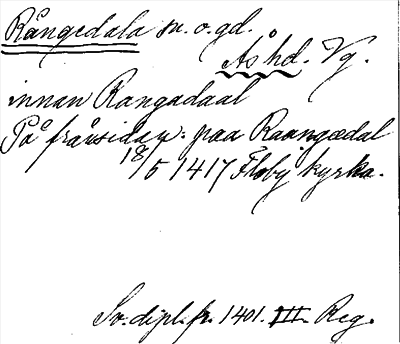 Rångedala sn. o. gd.
Ås hd. Vg.
innan Rangadaal
På frånsidan: paa Raangædal
18/5 1417 Floby kyrka.
Sv. dipl. fr. 1401. III. Reg.